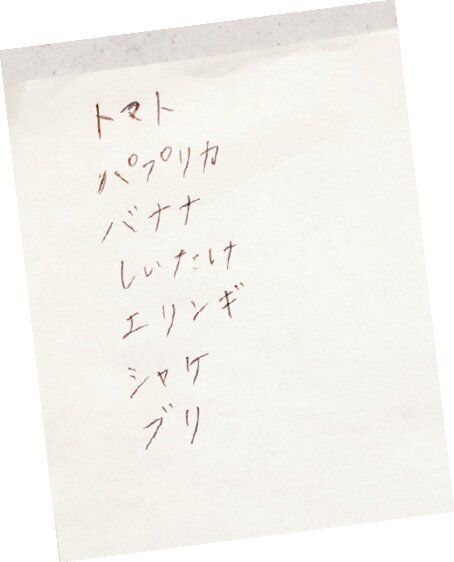 トマト
パプリカ
バナナ
しいたけ
エリンギ
シャケ
ブリ